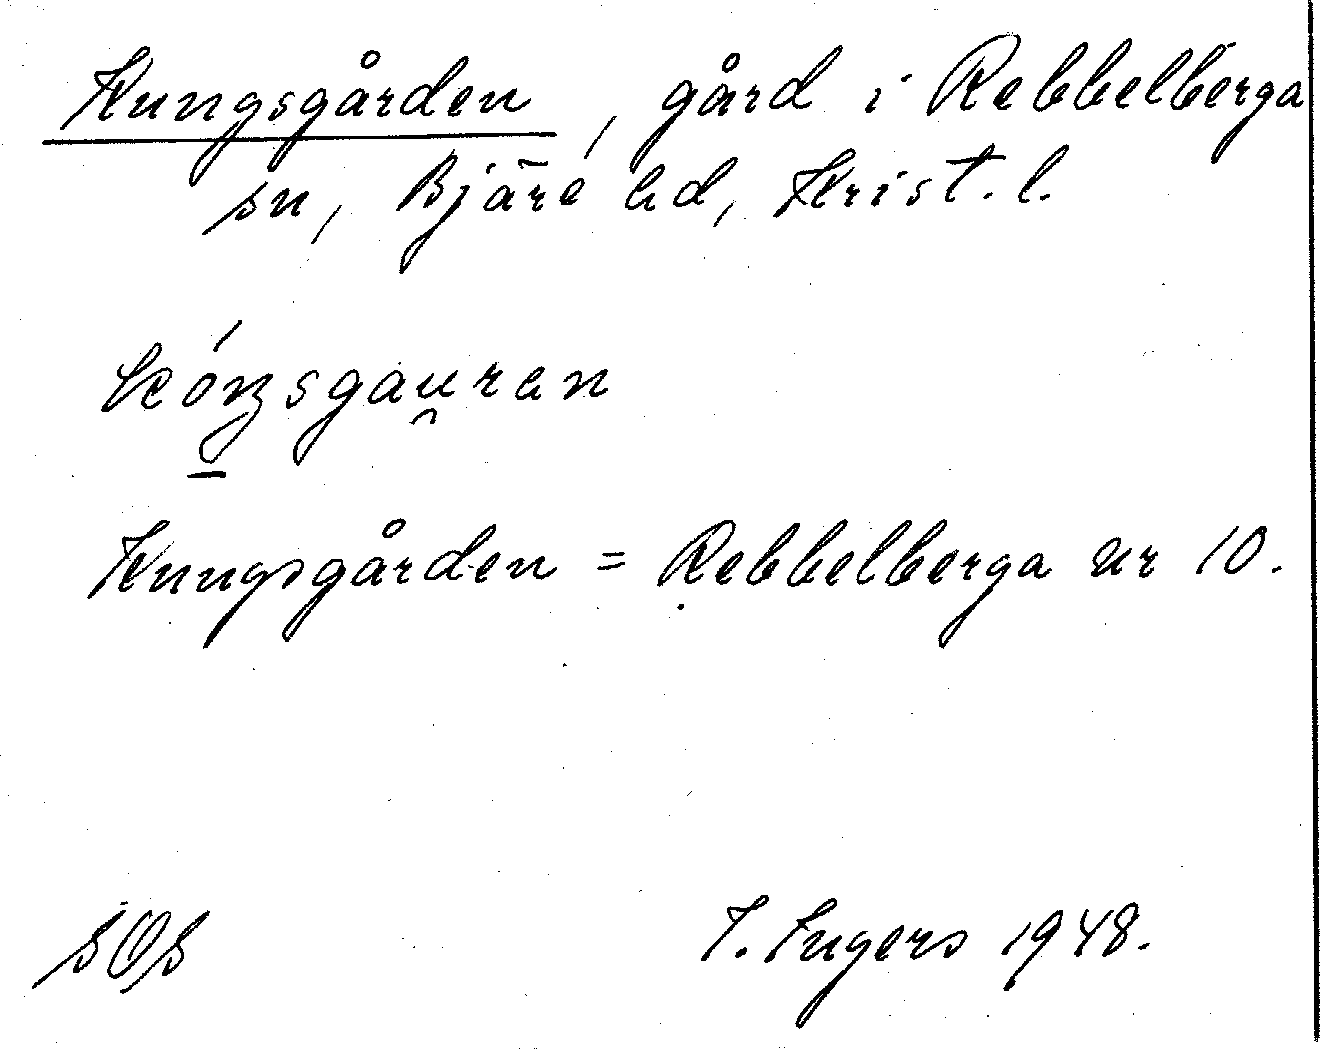 Kungsgården, gård i Rebbelberga
sn, Bjäre hd, Krist. l.
Kungsgården = Rebbelberga nr 10.
SOS
I. Ingers 1948.